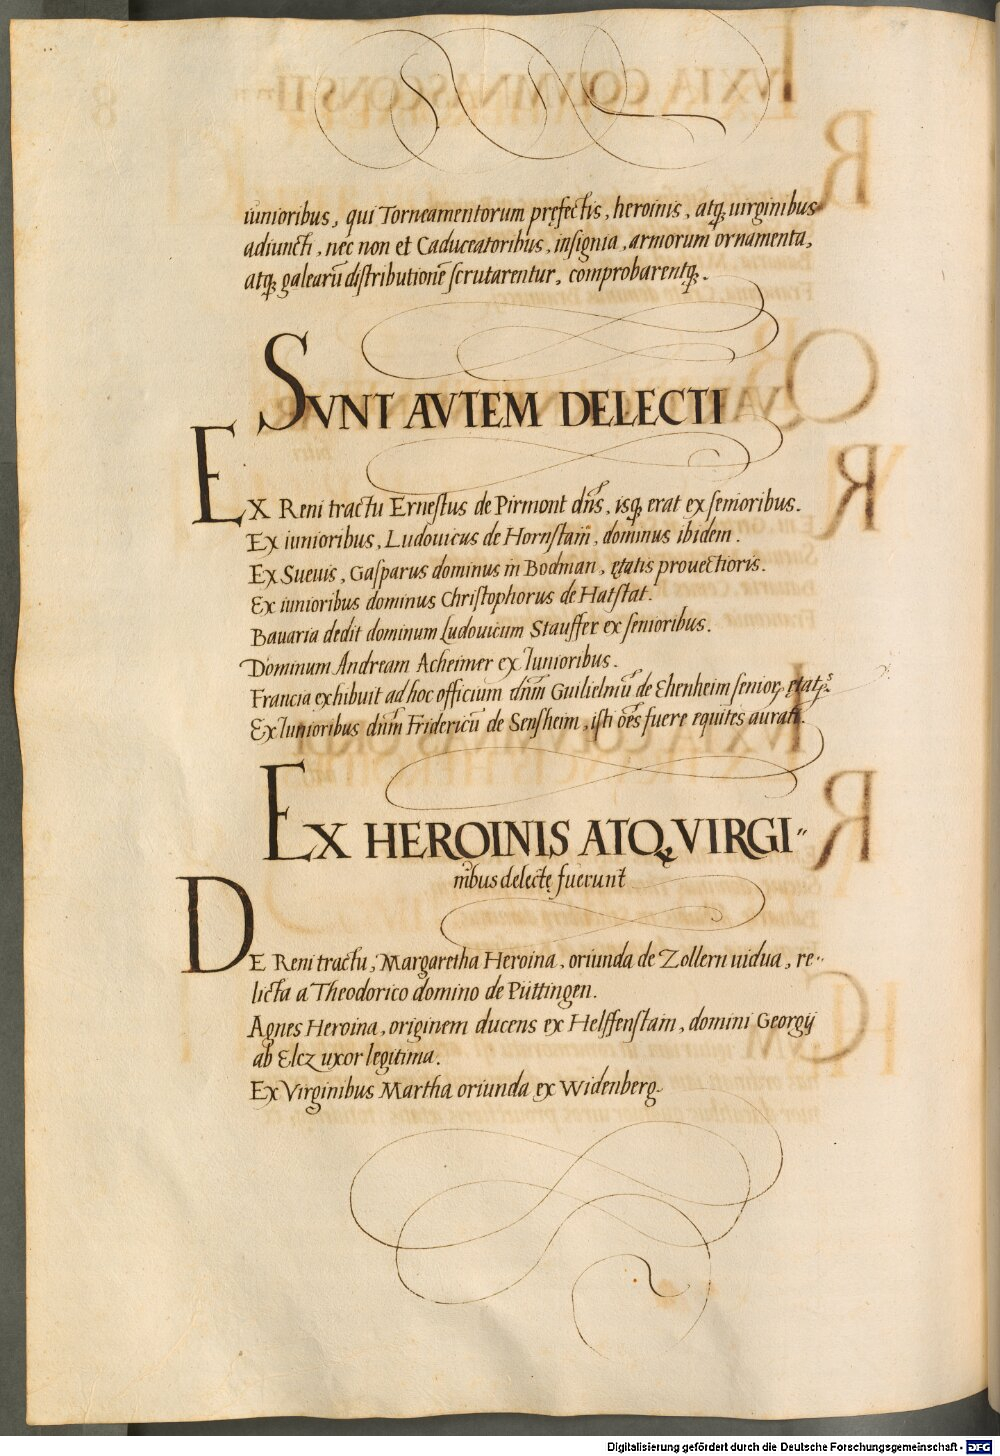 iunioribus, qui Torneamentorum pręfectis, heroinis, atq; uirginibus
adiuncti, nec non et Caduceatoribus, insignia, armorum ornamenta,
atq; galearū distributionē scrutarentur, comprobarentq;.
SVNT AVTEM DELECTI
EX Reni tractu Ernestus de Pirmont dn̄s, isq; erat ex senioribus.
Ex iunioribus, Ludouicus de Hornstain, dominus ibidem.
Ex Sueuis, Gasparus dominus in Bodman, ętatis prouectioris.
Ex iunioribus dominus Christophorus de Hatstat.
Bauaria dedit dominum Ludouicum Stauffer ex senioribus.
Dominum Andream Acheimer ex Iunioribus.
Francia exhibuit ad hoc officium dnm̄ Guilielmū de Ehenheim senior, ętat;
Ex Iunioribus dnm̄ Fridericū de Sensheim, isti oēs fuere equites aurati.
EX HEROINIS ATQ; VIRGI"
nibus delectę fuerunt
DE Reni tractu, Margaretha Heroina, oriunda de Zollern uidua, re"
licta a Theodorico domino de Püttingen.
Agnes Heroina, originem ducens ex Helffenstain, domini Georgij
ab Elcz uxor legitima.
Ex Virginibus Martha oriunda ex Widenberg.
Digitalisierung gefördert durch die Deutsche Forschungsgemeinschaft - DFG